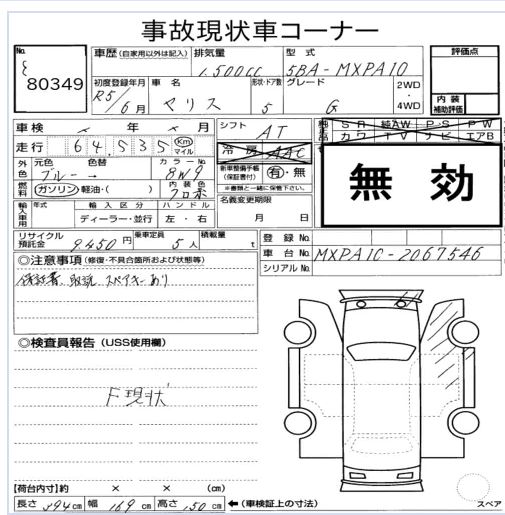 事故現状車コーナー
No. 80349
車歴(自家用以外は記入) 排気量 1,500cc 型式 5BA-MXPA10 評価点
初度登録年月 R5/6月 車名 ヤリス 形状・ドア数 5 グレード G 2WD・4WD 内装補助評価
車検 年 月 シフト AT 純正品 SR 純AW P・S PW
走行 64,535 Km マイル 冷房 AAC カワ TV ナビ エアB
外色 元色 ブルー → 色替 カラーNo. 8W9 新車整備手帳(保証書付) 有・無 無効
燃料 ガソリン・軽油・( ) 内装色 クロ系 ※書類と一緒に保管下さい。
輸入車用 年式 輸入区分 ディーラー・並行 ハンドル 左・右 名義変更期限 月 日
リサイクル預託金 9450円 乗車定員 5人 積載量 t 登録No.
車台No. MXPA10-2067546
シリアルNo.
◎注意事項(修復・不具合箇所および状態等)
保証書、取説、スペアキーあり
◎検査員報告(USS使用欄)
F現状
【荷台内寸】約 × × (cm)
長さ 394cm 幅 169cm 高さ 150cm ←(車検証上の寸法)
スペア